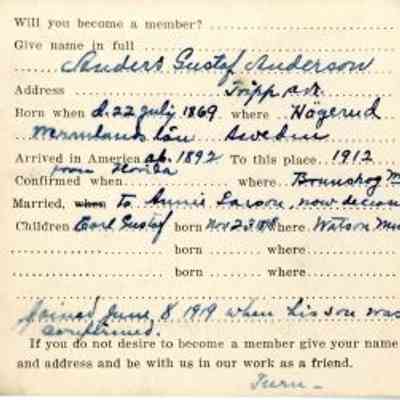 Will you become a member?
Give name in full
Anders Gustaf Anderson
Address Tripp S.D.
Born when d. 22 July 1869 where Högerud
Wermlands län Sweden
Arrived in America ab. 1892 To this place 1912
from Florida
Confirmed when where Brunskog
Married, when to Annie Larson, now
Children Carl Gustaf born Nov 23 where Watson
born where
born where
Joined June 8 1919 when his son was
confirmed.
If you do not desire to become a member give your name
and address and be with us in our work as a friend.
Turn –